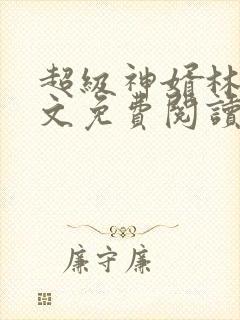 超級神婿林
文免費閱讀
廉守廉